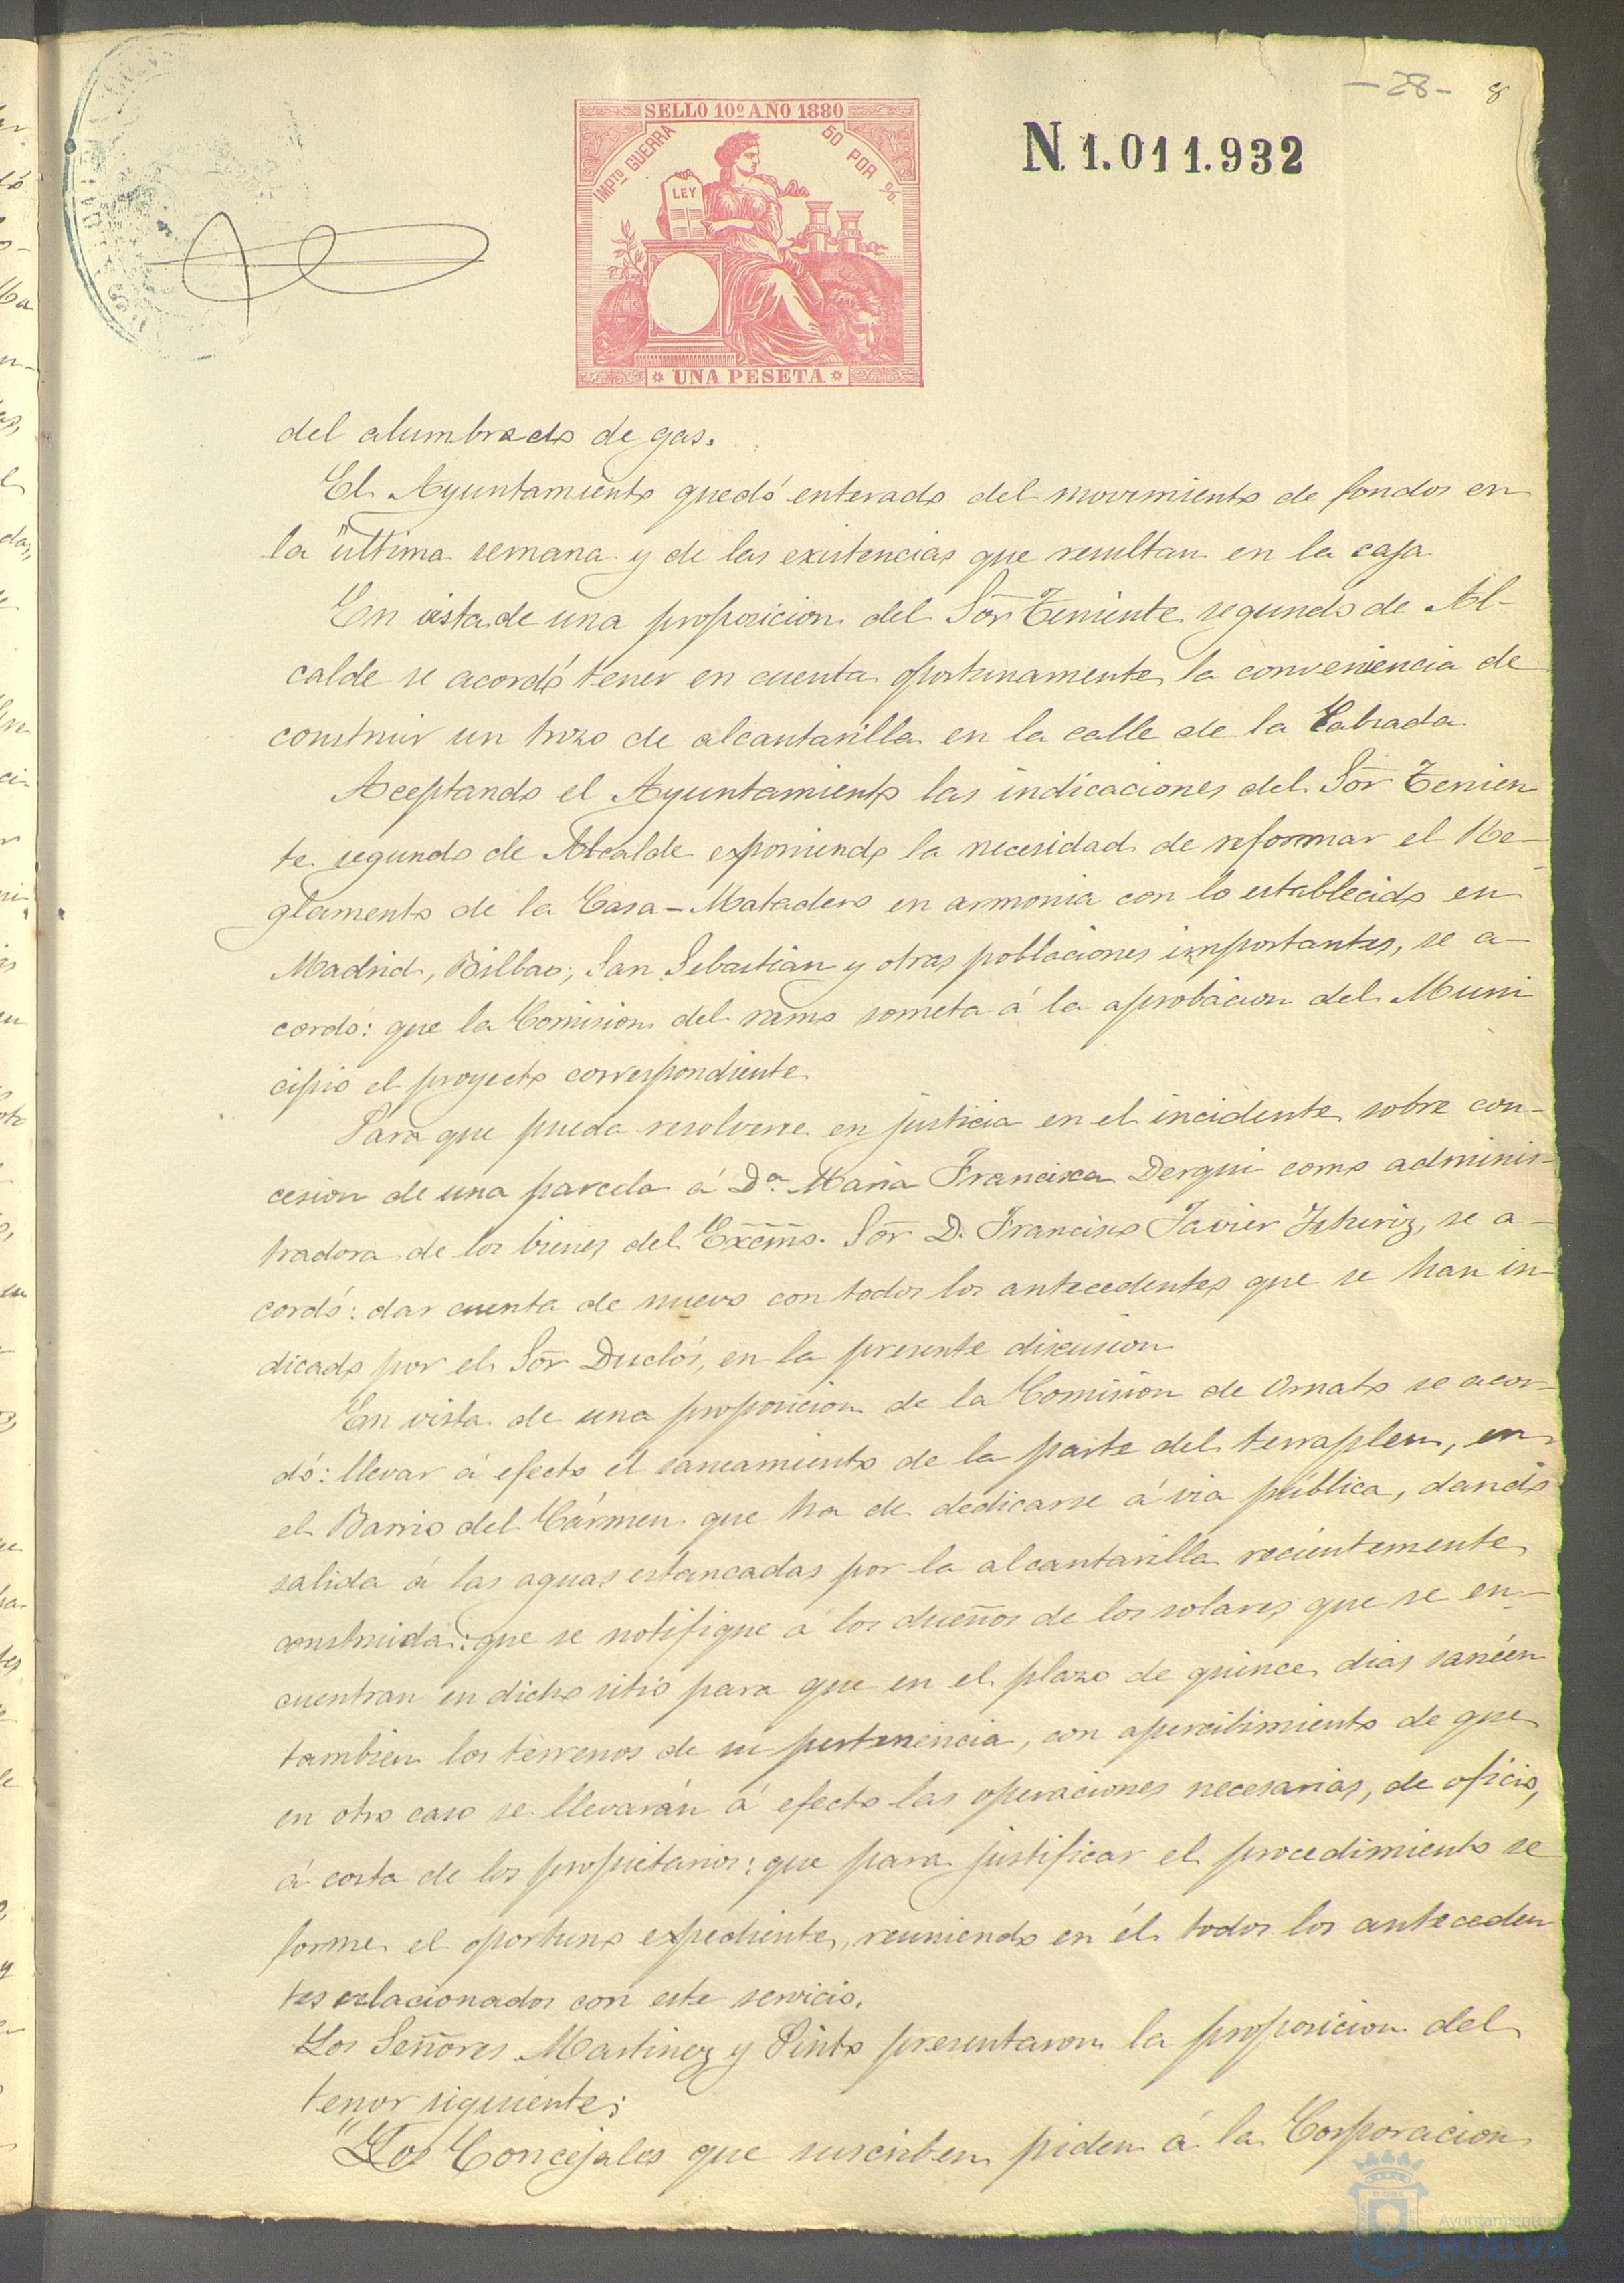 -28- 8
SELLO 10º AÑO 1880
IMPTO GUERRA 50 POR %.
LEY
UNA PESETA
N 1.011.932
del alumbrado de gas.
El Ayuntamiento quedó enterado del movimiento de fondos en
la última semana y de las existencias que resultan en la caja
En vista de una proposicion del Sor Teniente segundo de Al-
calde se acordó tener en cuenta oportunamente la conveniencia de
construir un trozo de alcantarilla en la calle de la Calzada
Aceptando el Ayuntamiento las indicaciones del Sor Tenien
te segundo de Alcalde exponiendo la necesidad de reformar el Re-
glamento de la Casa-Matadero en armonia con lo establecido en
Madrid, Bilbao, San Sebastian y otras poblaciones importantes, se a-
cordó: que la Comision del ramo someta á la aprobacion del Muni
cipio el proyecto correspondiente
Para que pueda resolverse en justicia en el incidente sobre con-
cesion de una parcela á Dª Maria Francisca Derqui como adminis-
tradora de los bienes del Excmo. Sor D. Francisco Javier Isturiz, se a-
cordó: dar cuenta de nuevo con todos los antecedentes que se han in
dicado por el Sor Duclós, en la presente discusion
En vista de una proposicion de la Comision de Ornato se acor-
dó: llevar á efecto el saneamiento de la parte del terraplen, en
el Barrio del Cármen que ha de dedicarse á via pública, dando
salida á las aguas estancadas por la alcantarilla recientemente
construida: que se notifique á los dueños de los solares que se en-
cuentran en dicho sitio para que en el plazo de quince dias saneen
tambien los terrenos de su pertenencia, con apercibimiento de que
en otro caso se llevarán á efecto las operaciones necesarias, de oficio,
á costa de los propietarios: que para justificar el procedimiento se
forme el oportuno expediente, reuniendo en él todos los anteceden
tes relacionados con este servicio.
Los Señores Martinez y Pinto presentaron la proposicion del
tenor siguiente:
"Los Concejales que suscriben piden á la Corporacion
Ayuntamiento de
HUELVA